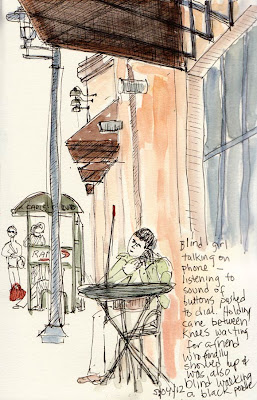 RA
Blind girl
talking on
phone -
listening to
sound of
buttons pushed
to dial. Holding
cane between
knees waiting
for a friend
who finally
showed up &
was also
blind walking
a black poodle